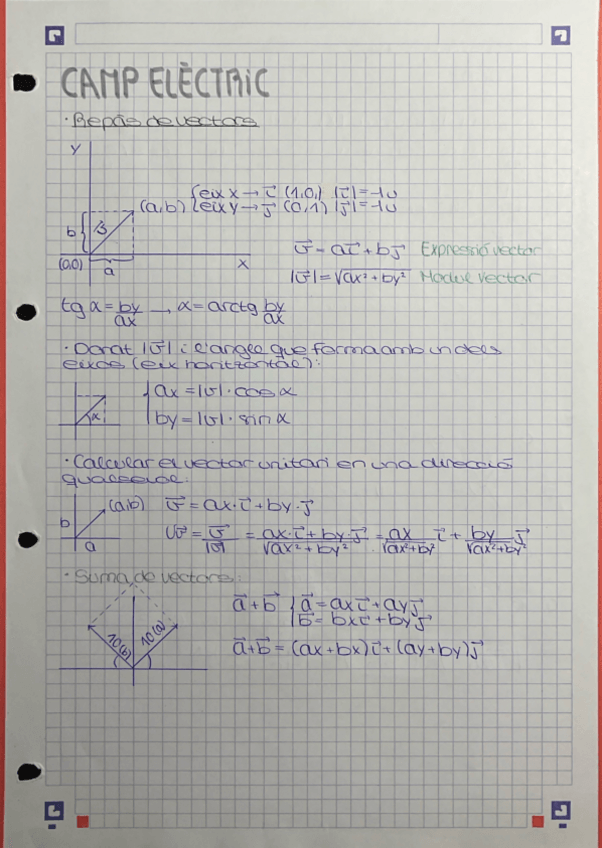 CAMP ELÈCTRIC
· Repàs de vectors
Y
(a,b)
eix x → i⃗ (1,0) |i⃗|=1u
eix y → j⃗ (0,1) |j⃗|=1u
b
a
(0,0)
X
v⃗ = a i⃗ + b j⃗ Expressió vector
|v⃗| = √ax² + by² Mòdul vector
tg α = by/ax → α = arctg by/ax
· Donat |v⃗| i l'angle que forma amb un dels
eixos (eix horitzontal):
α
ax = |v⃗| · cos α
by = |v⃗| · sin α
· Calcular el vector unitari en una direcció
qualsevol:
(a,b)
b
a
v⃗ = ax · i⃗ + by · j⃗
Uv⃗ = v⃗/|v⃗| = ax · i⃗ + by · j⃗/√ax² + by² = ax/√ax²+by² i⃗ + by/√ax²+by² j⃗
· Suma de vectors:
10(b)
10(a)
a⃗ + b⃗
a⃗ = ax i⃗ + ay j⃗
b⃗ = bx i⃗ + by j⃗
a⃗ + b⃗ = (ax + bx) i⃗ + (ay + by) j⃗